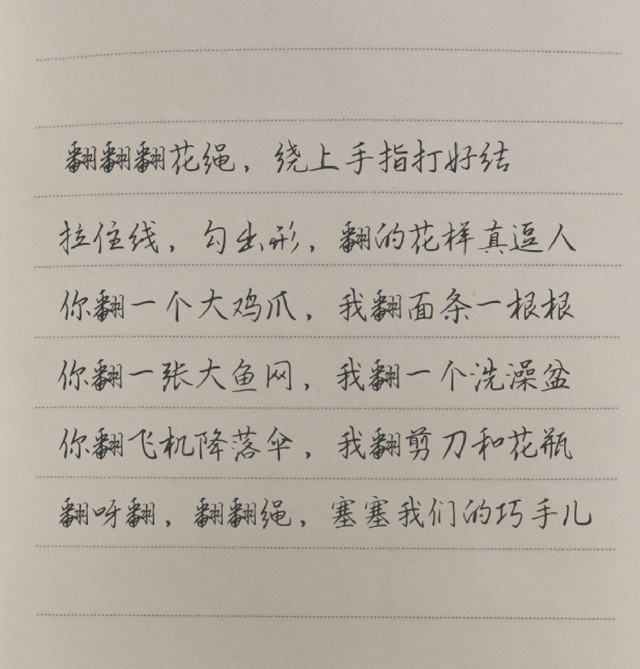 翻翻翻花绳，绕上手指打好结
拉住线，勾出形，翻的花样真逼人
你翻一个大鸡爪，我翻面条一根根
你翻一张大鱼网，我翻一个洗澡盆
你翻飞机降落伞，我翻剪刀和花瓶
翻呀翻，翻翻绳，塞塞我们的巧手儿